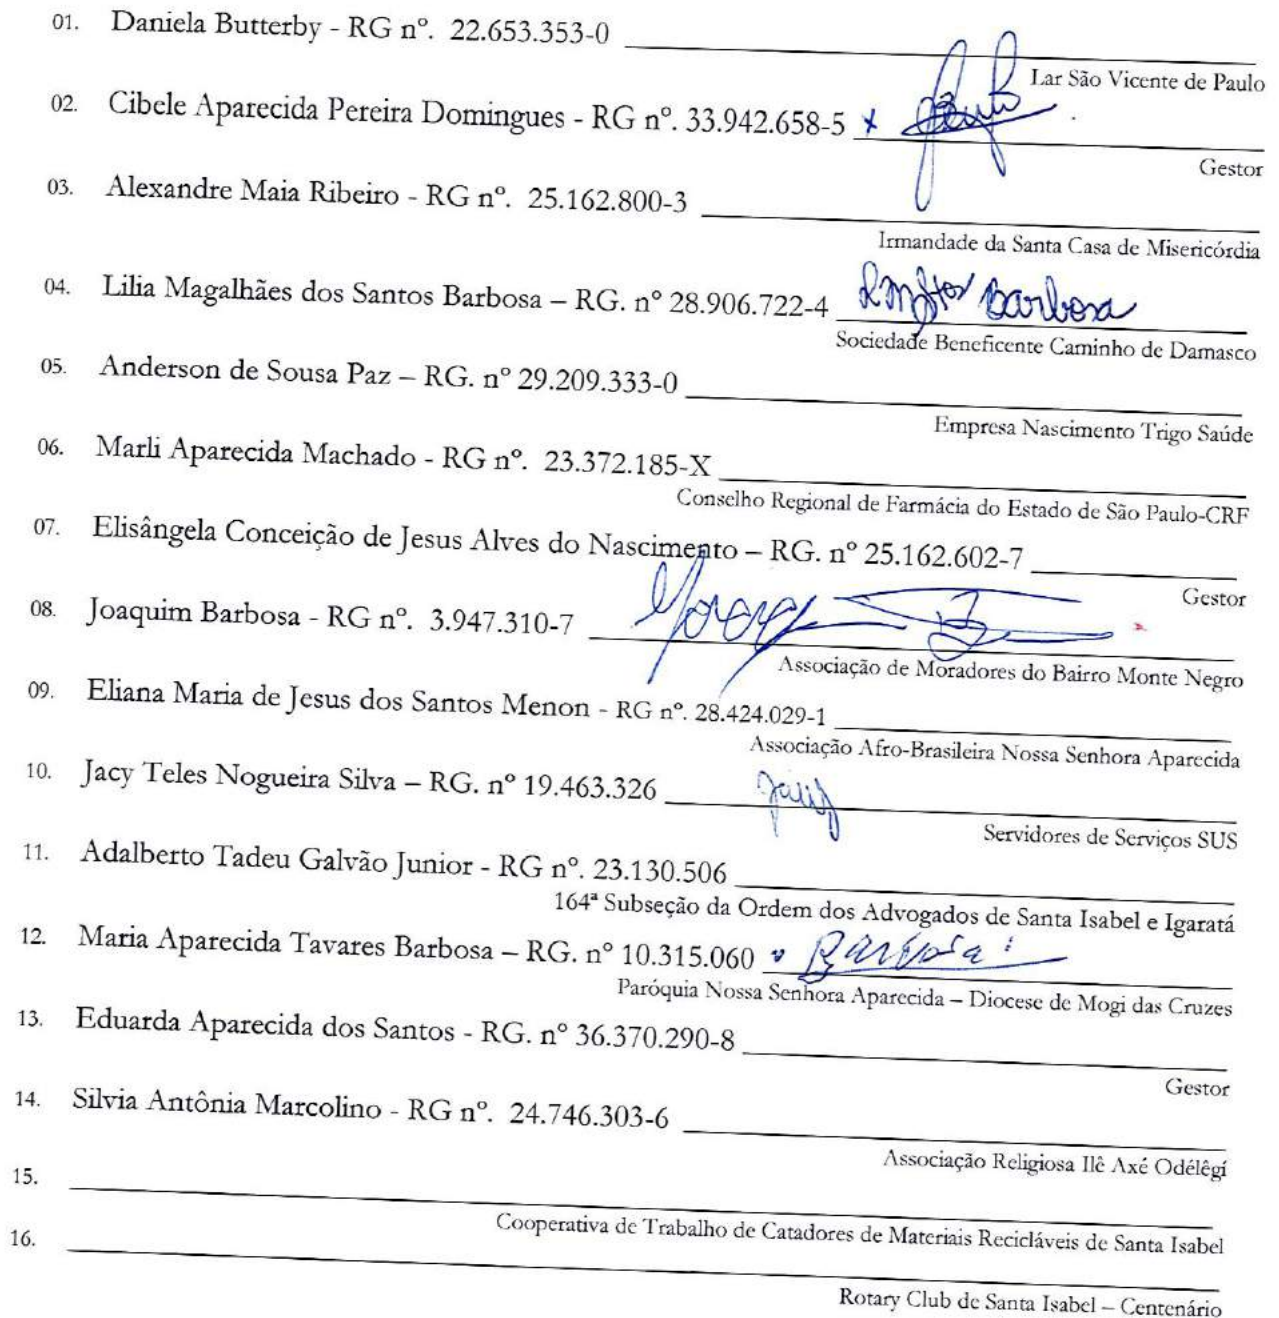 01. Daniela Butterby - RG nº. 22.653.353-0
Lar São Vicente de Paulo
02. Cibele Aparecida Pereira Domingues - RG nº. 33.942.658-5 x
Gestor
03. Alexandre Maia Ribeiro - RG nº. 25.162.800-3
Irmandade da Santa Casa de Misericórdia
04. Lilia Magalhães dos Santos Barbosa – RG. nº 28.906.722-4 Barbosa
Sociedade Beneficente Caminho de Damasco
05. Anderson de Sousa Paz – RG. nº 29.209.333-0
Empresa Nascimento Trigo Saúde
06. Marli Aparecida Machado - RG nº. 23.372.185-X
Conselho Regional de Farmácia do Estado de São Paulo-CRF
07. Elisângela Conceição de Jesus Alves do Nascimento – RG. nº 25.162.602-7
Gestor
08. Joaquim Barbosa - RG nº. 3.947.310-7
Associação de Moradores do Bairro Monte Negro
09. Eliana Maria de Jesus dos Santos Menon - RG nº. 28.424.029-1
Associação Afro-Brasileira Nossa Senhora Aparecida
10. Jacy Teles Nogueira Silva – RG. nº 19.463.326
Servidores de Serviços SUS
11. Adalberto Tadeu Galvão Junior - RG nº. 23.130.506
164ª Subseção da Ordem dos Advogados de Santa Isabel e Igaratá
12. Maria Aparecida Tavares Barbosa – RG. nº 10.315.060 Barbosa
Paróquia Nossa Senhora Aparecida – Diocese de Mogi das Cruzes
13. Eduarda Aparecida dos Santos - RG. nº 36.370.290-8
Gestor
14. Silvia Antônia Marcolino - RG nº. 24.746.303-6
Associação Religiosa Ilê Axé Odélêgí
15.
Cooperativa de Trabalho de Catadores de Materiais Recicláveis de Santa Isabel
16.
Rotary Club de Santa Isabel – Centenário